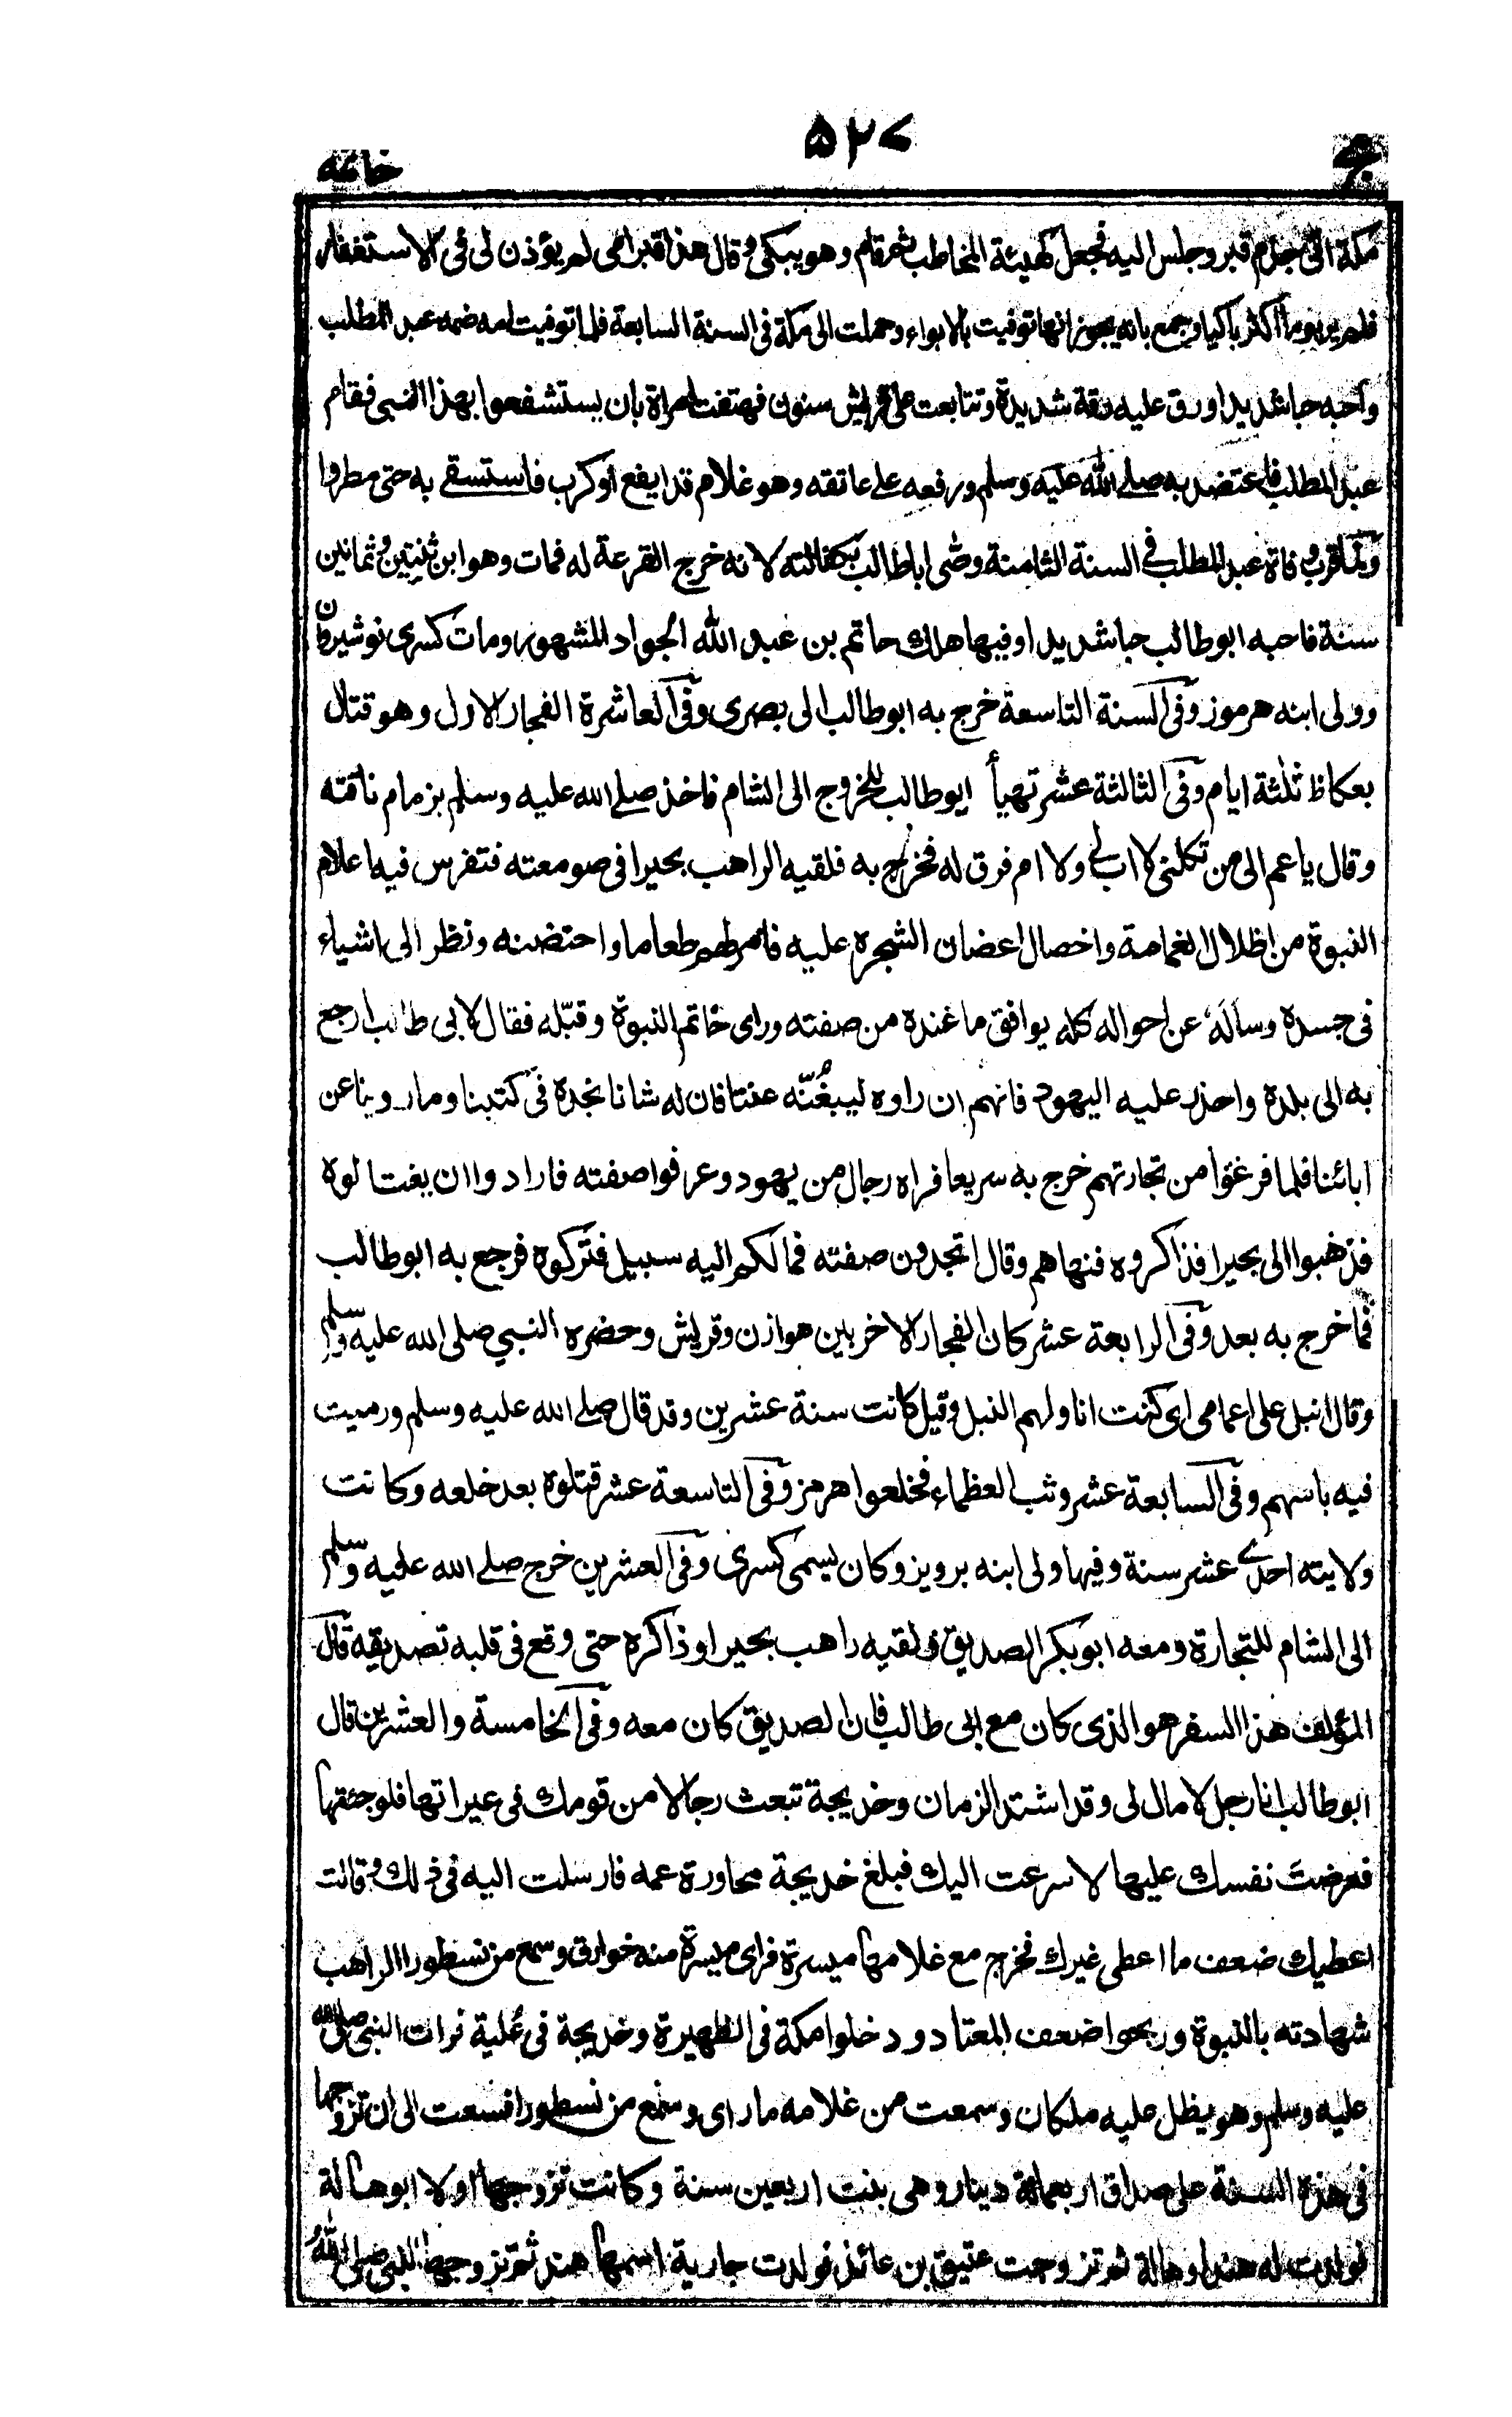 ج ٥٢٧ خاتمه
مكة اتى جذم قبر وجلس اليه فجعل كهيئة المخاطب ثم قام وهو يبكى وقال هذا قبر امى لم يؤذن لى فى الاستغفار
فلم ير يوما اكثر باكيا وجمع بانه يجوز انها توفيت بالابواء وحملت الى مكة فى السنة السابعة فلما توفيت امه ضمه عبد المطلب
واحبه حبا شديدا ورق عليه رقة شديدة وتتابعت على قريش سنون فهتفت امراة بان يستشفعوا بهذا النبى فقام
عبد المطلب فاعتضد به صلے الله عليه وسلم ورفعه علے عاتقه وهو غلام قد ايفع او كرب فاستسقے به حتى مطروا
ولما قرب وفاة عبد المطلب فے السنة الثامنة وصّى اباطالب بكفالته لانه خرج القرعة له فمات وهو ابن ثنتين وثمانين
سنة فاحبه ابوطالب حبا شديدا وفيها هلك حاتم بن عبد الله الجواد المشهور ومات كسرى نوشيروان
وولى ابنه هرموز وفى السنة التاسعة خرج به ابوطالب الى بصرى وفى العاشرة الفجار الاول وهو قتال
بعكاظ ثلٰثة ايام وفى الثالثة عشر تهيأ ابوطالب للخروج الى الشام فاخذ صلے الله عليه وسلم بزمام ناقته
وقال يا عم الى من تكلنى لا اب لے ولا ام فرق له فخرج به فلقيه الراهب بحيرا فى صومعته فتفرس فيه اعلام
النبوة من اظلال الغمامة واخصال اعضان الشجره عليه فامر لهم طعاما واحتضنه ونظر الى اشياء
فى جسده وسأله عن احواله كله يوافق ما عنده من صفته وراى خاتم النبوة وقبّله فقال لابى طالب ارجع
به الى بلده واحذر عليه اليهود فانهم ان راوه ليبغُنّه عنتا فان له شانا نجده فى كتبنا وما روينا عن
ابائنا فلما فرغوا من تجارتهم خرج به سريعا فراه رجال من يهود وعرفوا صفته فارادوا ان يغتالوه
فذهبوا الى بحيرا فذاكروه فنهاهم وقال اتجدون صفته فمالكم اليه سبيل فتركوه فرجع به ابوطالب
فما خرج به بعد وفى الرابعة عشر كان الفجار الاخر بين هوازن وقريش وحضره النبي صلى الله عليه وسلم
وقال انبل على اعمامى اى كنت اناولهم النبل وقيل كانت سنة عشرين وقد قال صلے الله عليه وسلم ورميت
فيه باسهم وفى السابعة عشر وثب العظماء فخلعوا هرمز وفى التاسعة عشر قتلوه بعد خلعه وكانت
ولايته احدے عشر سنة وفيها ولى ابنه برويز وكان يسمى كسرى وفى العشرين خرج صلے الله عليه وسلم
الى الشام للتجارة ومعه ابوبكر الصديق ولقيه راهب بحيرا وذاكره حتى وقع فى قلبه تصديقه قال
المؤلف هذا السفر هو الذى كان مع ابى طالب فان الصديق كان معه وفى الخامسة والعشرين قال
ابوطالب انا رجل لا مال لى وقد اشتد الزمان وخديجة تبعث رجالا من قومك فى عيراتها فلو جئتها
فعرضتَ نفسك عليها لاسرعت اليك فبلغ خديجة محاورة عمه فارسلت اليه فى ذلك وقالت
اعطيك ضعف ما اعطى غيرك فخرج مع غلامها ميسرة فراى ميسرة منه خوارق وسمع من نسطورا الراهب
شهادته بالنبوة وربحوا ضعف المعتاد ودخلوا مكة فى الظهيرة وخديجة فى عُلية فرات النبى صلى الله
عليه وسلم وهو يظل عليه ملكان وسمعت من غلامه ما راى وسمع من نسطورا فسعت الى ان تزوجها
فى هذه السنة على صداق اربعمائة دينار وهى بنت اربعين سنة وكانت تزوجها اولا ابوهالة
فولدت له هندا وهالة ثم تزوجت عتيق بن عائذ فولدت جارية اسمها هند ثم تزوجها النبى صلى الله